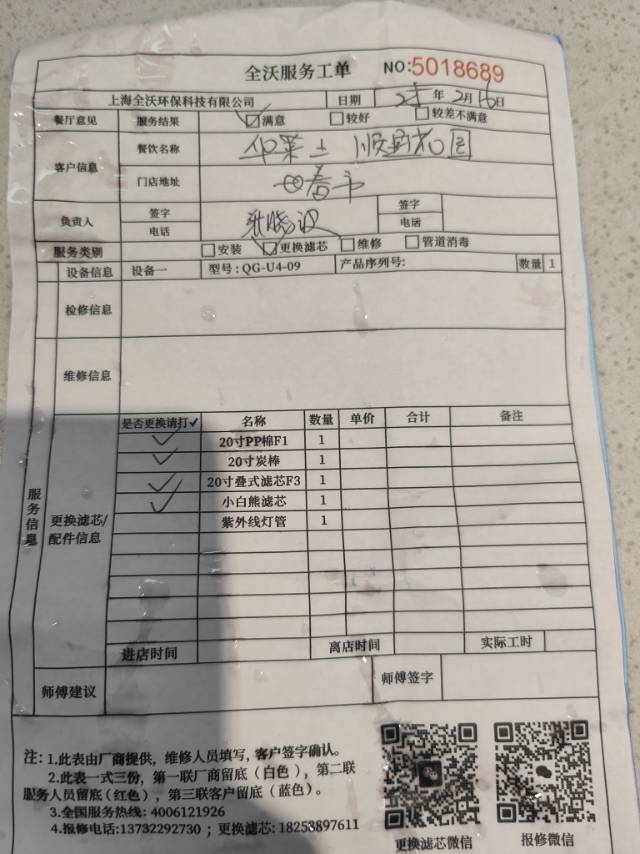 全沃服务工单 NO:5018689
上海全沃环保科技有限公司 日期 年 2月16日
餐厅意见 服务结果 ☑满意 □较好 □较差不满意
客户信息 餐饮名称 华莱士
门店地址
负责人 签字 签字
电话 电话
服务类别 □安装 ☑更换滤芯 □维修 □管道消毒
设备信息 设备一 型号:QG-U4-09 产品序列号: 数量 1
检修信息
维修信息
服务信息
更换滤芯/配件信息
是否更换请打✓ 名称 数量 单价 合计 备注
✓ 20寸PP棉F1 1
✓ 20寸炭棒 1
✓ 20寸叠式滤芯F3 1
✓ 小白熊滤芯 1
紫外线灯管 1
进店时间 离店时间 实际工时
师傅建议 师傅签字
注:1.此表由厂商提供,维修人员填写,客户签字确认。
2.此表一式三份,第一联厂商留底(白色),第二联
服务人员留底(红色),第三联客户留底(蓝色)。
3.全国服务热线:4006121926
4.报修电话:13732292730;更换滤芯:18253897611
更换滤芯微信 报修微信